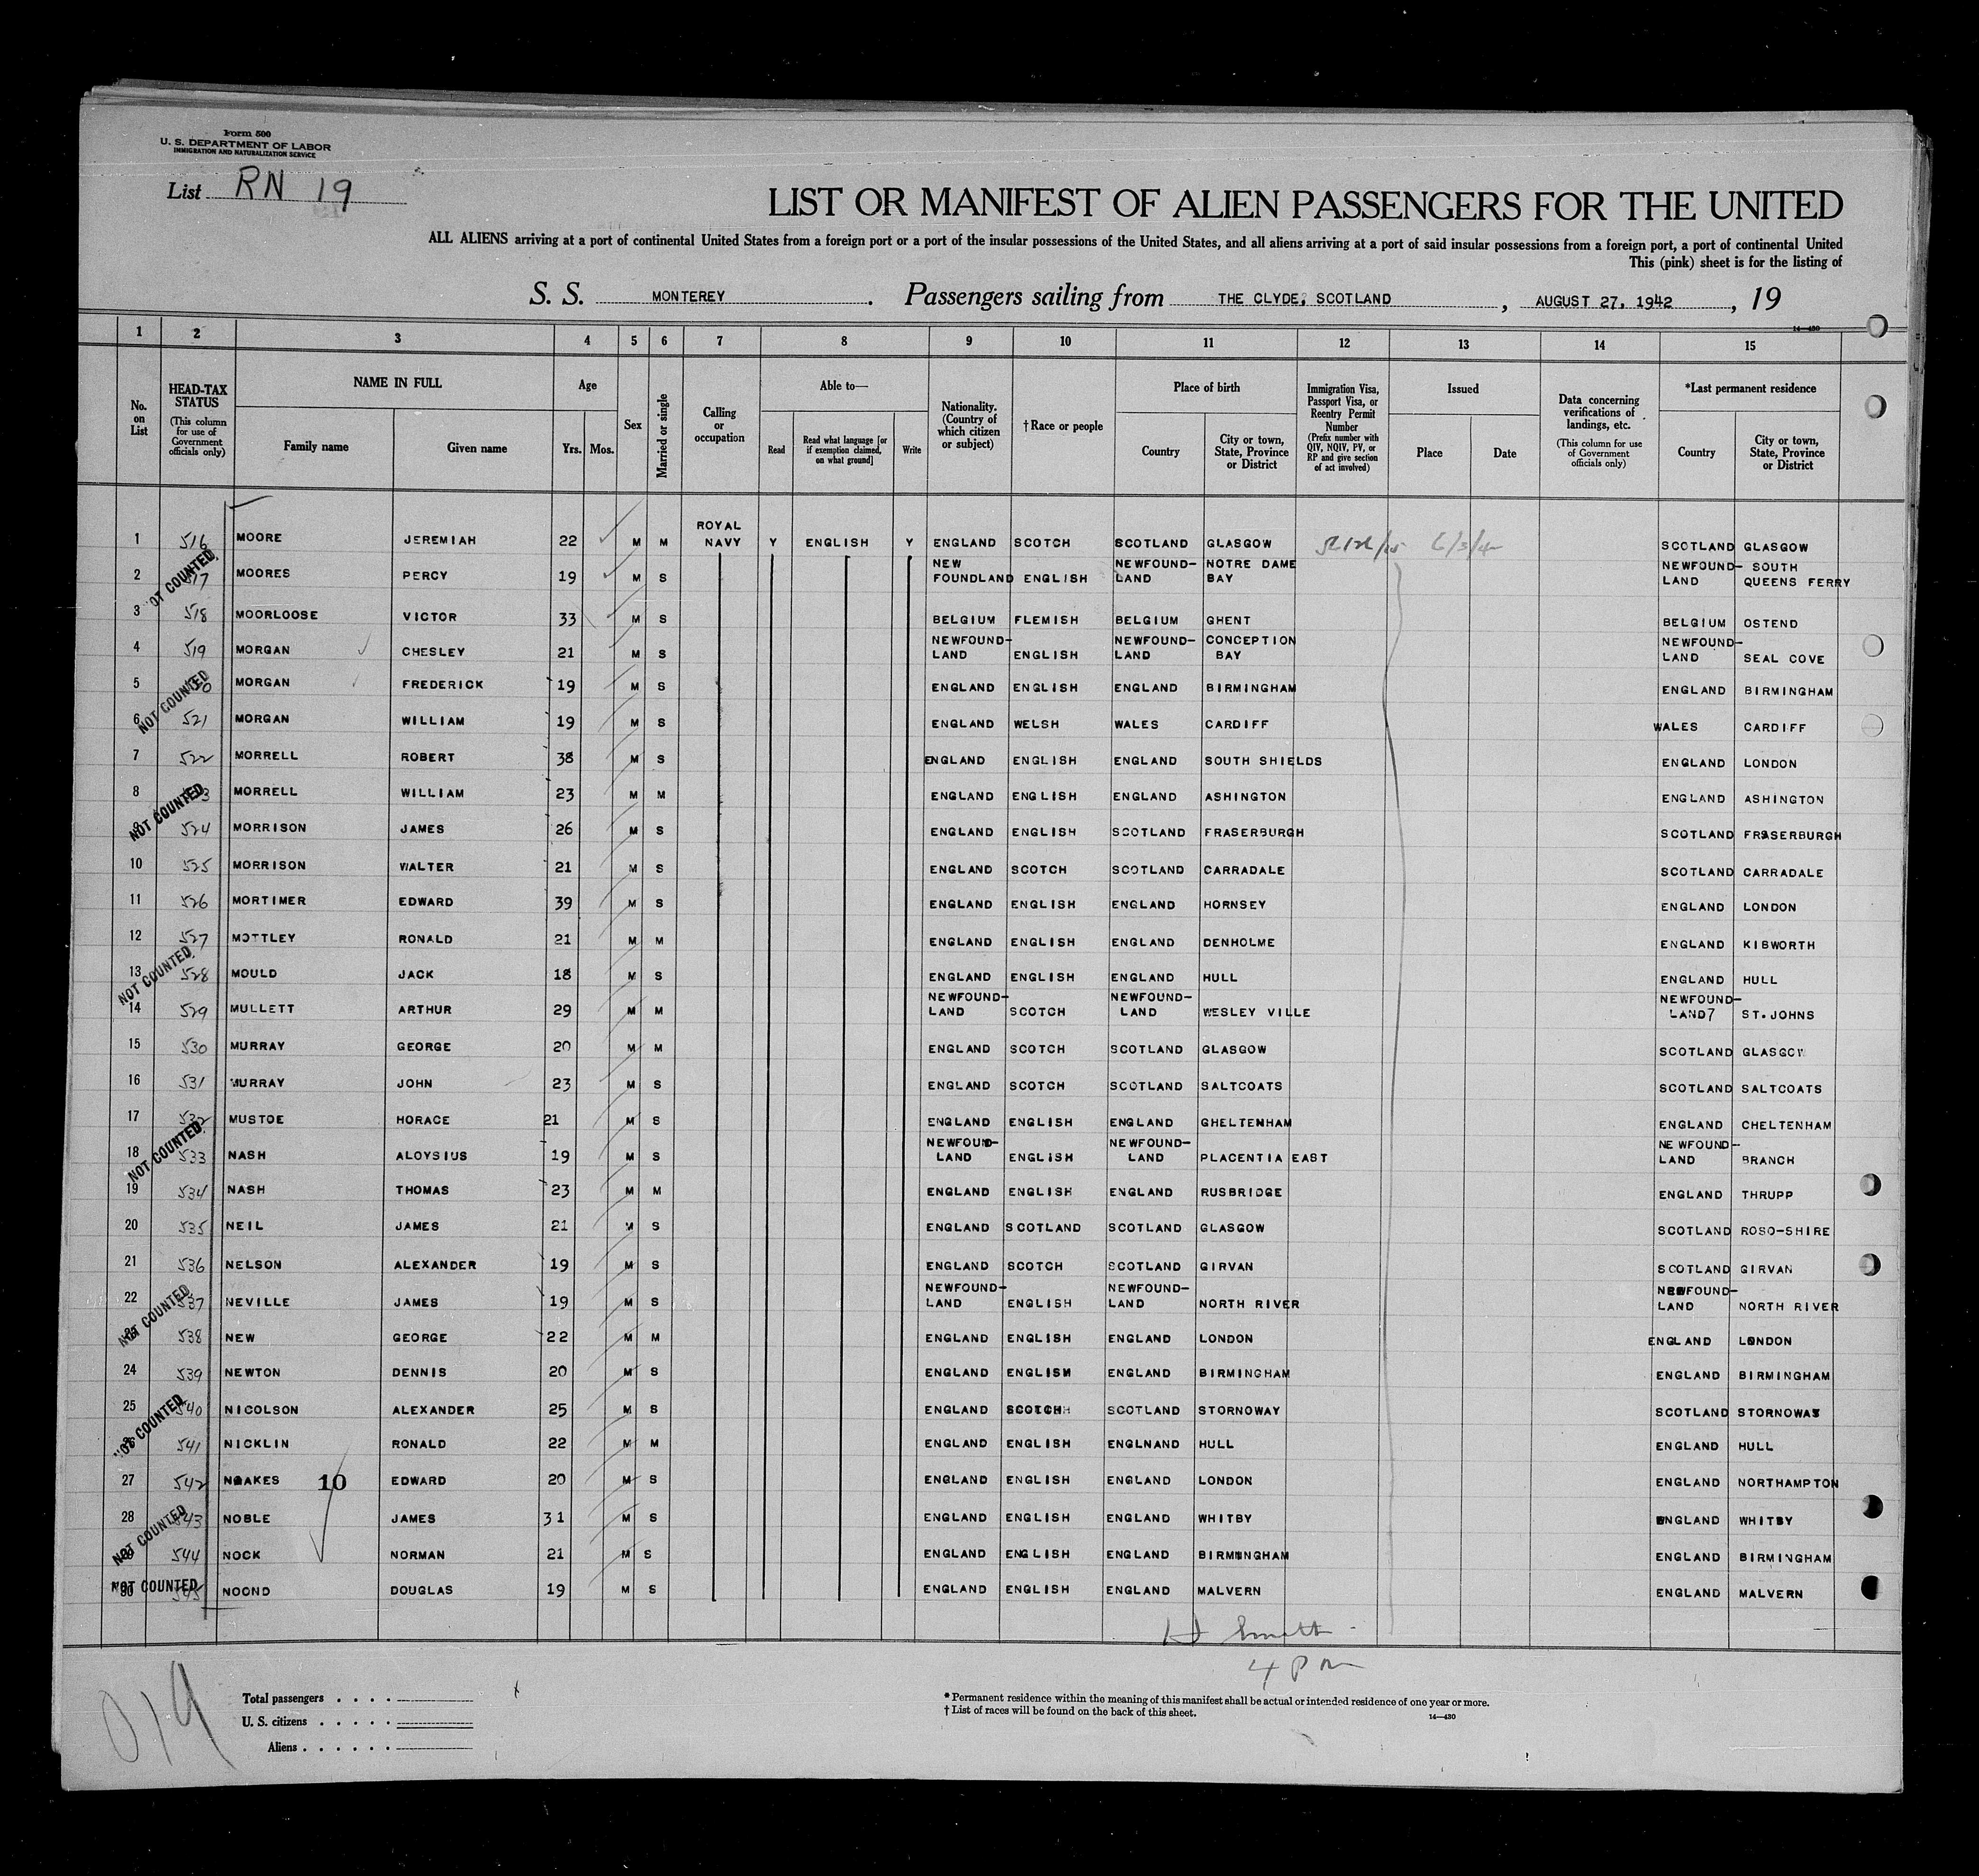 Form 500
U. S. DEPARTMENT OF LABOR
IMMIGRATION AND NATURALIZATION SERVICE
List RN 19
LIST OR MANIFEST OF ALIEN PASSENGERS FOR THE UNITED
ALL ALIENS arriving at a port of continental United States from a foreign port or a port of the insular possessions of the United States, and all aliens arriving at a port of said insular possessions from a foreign port, a port of continental United
This (pink) sheet is for the listing of
S. S. MONTEREY. Passengers sailing from THE CLYDE, SCOTLAND, AUGUST 27, 1942, 19
14—430
1 2 3 4 5 6 7 8 9 10 11 12 13 14 15
No. on List
HEAD-TAX STATUS (This column for use of Government officials only)
NAME IN FULL
Family name Given name
Age
Yrs. Mos.
Sex
Married or single
Calling or occupation
Able to—
Read
Read what language [or if exemption claimed, on what ground]
Write
Nationality. (Country of which citizen or subject)
†Race or people
Place of birth
Country
City or town, State, Province or District
Immigration Visa, Passport Visa, or Reentry Permit Number (Prefix number with QIV, NQIV, PV, or RP and give section of act involved)
Issued
Place Date
Data concerning verifications of landings, etc. (This column for use of Government officials only)
*Last permanent residence
Country
City or town, State, Province or District
1 516 MOORE JEREMIAH 22 M M ROYAL NAVY Y ENGLISH Y ENGLAND SCOTCH SCOTLAND GLASGOW SCOTLAND GLASGOW
2 517 MOORES PERCY 19 M S NEW FOUNDLAND ENGLISH NEWFOUND-LAND NOTRE DAME BAY NEWFOUND-LAND SOUTH QUEENS FERRY
NOT COUNTED.
3 518 MOORLOOSE VICTOR 33 M S BELGIUM FLEMISH BELGIUM GHENT BELGIUM OSTEND
4 519 MORGAN CHESLEY 21 M S NEWFOUND-LAND ENGLISH NEWFOUND-LAND CONCEPTION BAY NEWFOUND-LAND SEAL COVE
5 520 MORGAN FREDERICK 19 M S ENGLAND ENGLISH ENGLAND BIRMINGHAM ENGLAND BIRMINGHAM
NOT COUNTED
6 521 MORGAN WILLIAM 19 M S ENGLAND WELSH WALES CARDIFF WALES CARDIFF
7 522 MORRELL ROBERT 38 M S ENGLAND ENGLISH ENGLAND SOUTH SHIELDS ENGLAND LONDON
8 523 MORRELL WILLIAM 23 M M ENGLAND ENGLISH ENGLAND ASHINGTON ENGLAND ASHINGTON
NOT COUNTED
9 524 MORRISON JAMES 26 M S ENGLAND ENGLISH SCOTLAND FRASERBURGH SCOTLAND FRASERBURGH
10 525 MORRISON WALTER 21 M S ENGLAND SCOTCH SCOTLAND CARRADALE SCOTLAND CARRADALE
11 526 MORTIMER EDWARD 39 M S ENGLAND ENGLISH ENGLAND HORNSEY ENGLAND LONDON
12 527 MOTTLEY RONALD 21 M M ENGLAND ENGLISH ENGLAND DENHOLME ENGLAND KIBWORTH
13 528 MOULD JACK 18 M S ENGLAND ENGLISH ENGLAND HULL ENGLAND HULL
NOT COUNTED.
14 529 MULLETT ARTHUR 29 M M NEWFOUND-LAND SCOTCH NEWFOUND-LAND WESLEY VILLE NEWFOUND-LAND7 ST.JOHNS
15 530 MURRAY GEORGE 20 M M ENGLAND SCOTCH SCOTLAND GLASGOW SCOTLAND GLASGOW
16 531 MURRAY JOHN 23 M S ENGLAND SCOTCH SCOTLAND SALTCOATS SCOTLAND SALTCOATS
17 532 MUSTOE HORACE 21 M S ENGLAND ENGLISH ENGLAND GHELTENHAM ENGLAND CHELTENHAM
NOT COUNTED.
18 533 NASH ALOYSIUS 19 M S NEWFOUND-LAND ENGLISH NEWFOUND-LAND PLACENTIA EAST NEWFOUND-LAND BRANCH
19 534 NASH THOMAS 23 M M ENGLAND ENGLISH ENGLAND RUSBRIDGE ENGLAND THRUPP
20 535 NEIL JAMES 21 M S ENGLAND SCOTLAND SCOTLAND GLASGOW SCOTLAND ROSO-SHIRE
21 536 NELSON ALEXANDER 19 M S ENGLAND SCOTCH SCOTLAND GIRVAN SCOTLAND GIRVAN
22 537 NEVILLE JAMES 19 M S NEWFOUND-LAND ENGLISH NEWFOUND-LAND NORTH RIVER NEWFOUND-LAND NORTH RIVER
NOT COUNTED
538 NEW GEORGE 22 M M ENGLAND ENGLISH ENGLAND LONDON ENGLAND LONDON
24 539 NEWTON DENNIS 20 M S ENGLAND ENGLISH ENGLAND BIRMINGHAM ENGLAND BIRMINGHAM
25 540 NICOLSON ALEXANDER 25 M S ENGLAND SCOTCH SCOTLAND STORNOWAY SCOTLAND STORNOWAY
NOT COUNTED
541 NICKLIN RONALD 22 M M ENGLAND ENGLISH ENGLNAND HULL ENGLAND HULL
27 542 NOAKES 10 EDWARD 20 M S ENGLAND ENGLISH ENGLAND LONDON ENGLAND NORTHAMPTON
28 543 NOBLE JAMES 31 M S ENGLAND ENGLISH ENGLAND WHITBY ENGLAND WHITBY
NOT COUNTED
544 NOCK NORMAN 21 M S ENGLAND ENGLISH ENGLAND BIRMINGHAM ENGLAND BIRMINGHAM
NOT COUNTED
30 545 NOOND DOUGLAS 19 M S ENGLAND ENGLISH ENGLAND MALVERN ENGLAND MALVERN
4 PM
019
Total passengers
U. S. citizens
Aliens
* Permanent residence within the meaning of this manifest shall be actual or intended residence of one year or more.
† List of races will be found on the back of this sheet.
14—430